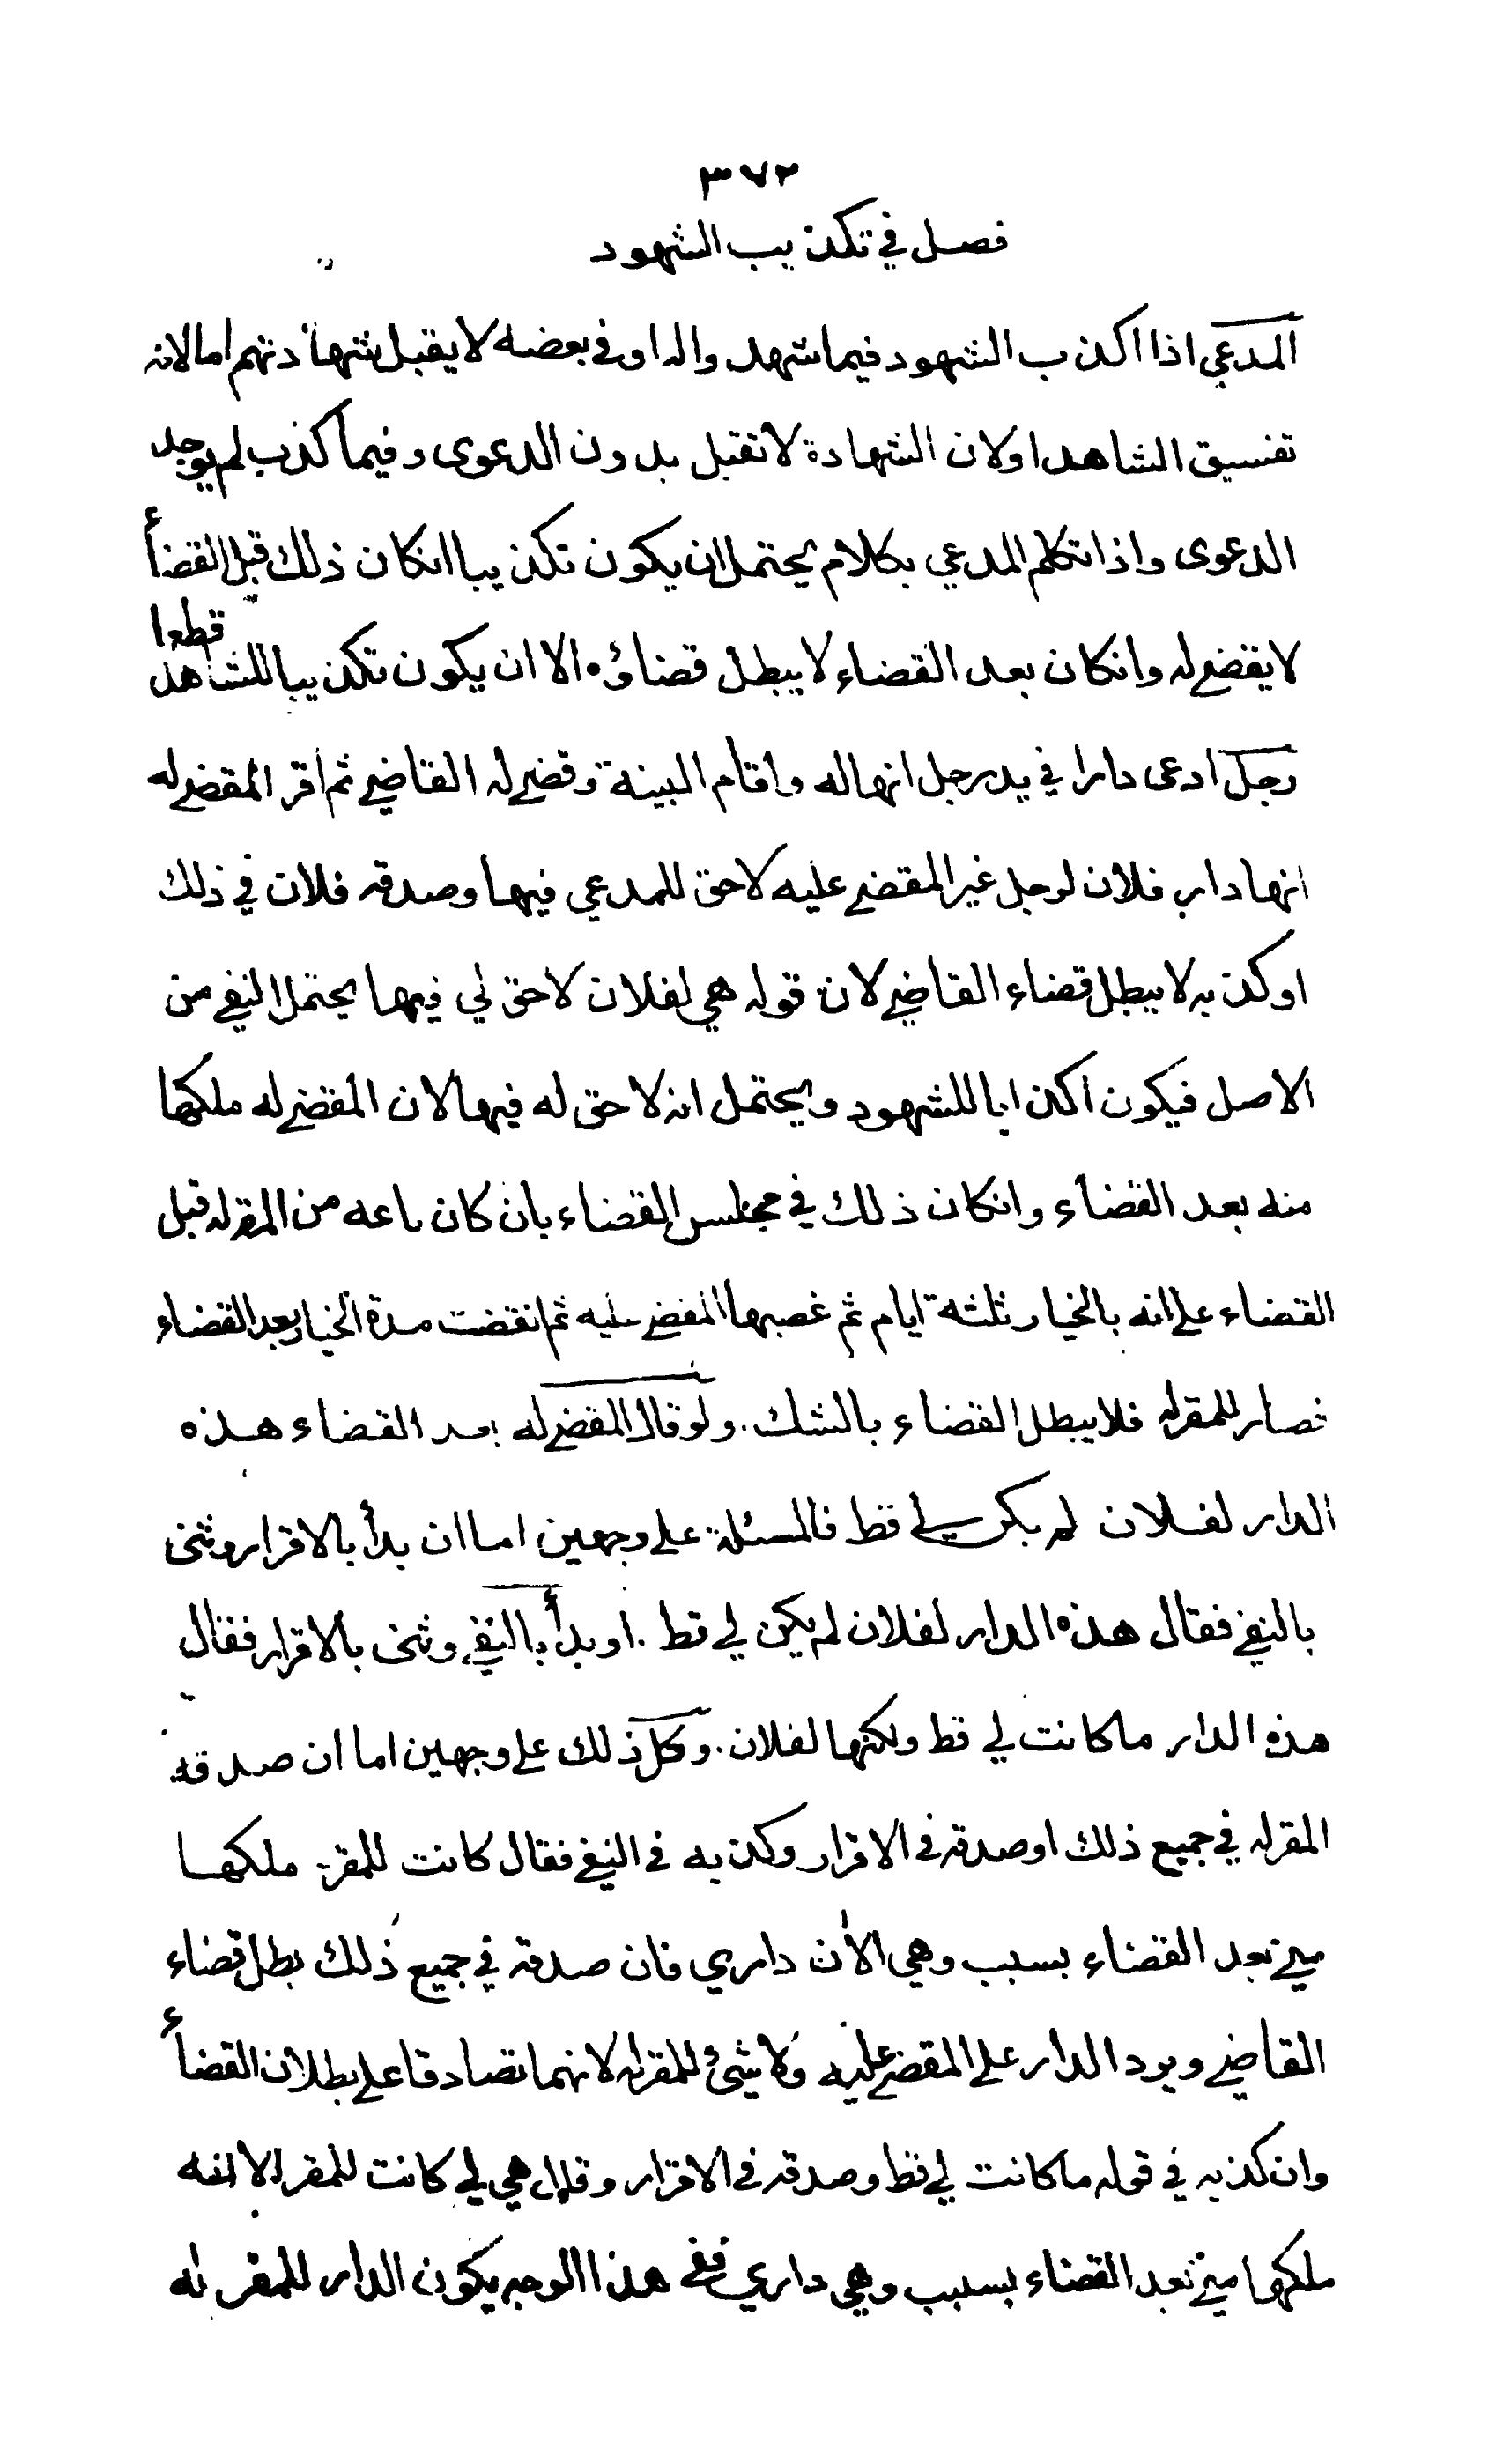 ٣٧٢
فصل في تكذيب الشهود
المدعي اذا اكذب الشهود فيما شهدوا له او في بعضه لا يقبل شهادتهم اما لانه
تفسيق الشاهد او لان الشهادة لا تقبل بدون الدعوى وفيما كذب لم يوجد
الدعوى واذا تكلم المدعي بكلام يحتمل ان يكون تكذيبا انكان ذلك قبل القضأ
لا يقضي له وانكان بعد القضاء لا يبطل قضاؤه الا ان يكون تكذيبا للشاهد قطعا
رجل ادعى دارا في يد رجل انها له واقام البينة وقضي له القاضي ثم اقر المقضي له
انها دار فلان لرجل غير المقضي عليه لا حق للمدعي فيها وصدقه فلان في ذلك
او كذبه لا يبطل قضاء القاضي لان قوله هي لفلان لا حق لي فيها يحتمل النفي من
الاصل فيكون اكذابا للشهود ويحتمل انه لا حق له فيها لان المقضي له ملكها
منه بعد القضاء وانكان ذلك في مجلس القضاء بان كان باعه من المقر له قبل
القضاء على انه بالخيار ثلثة ايام ثم غصبها المقضي عليه ثم انقضت مدة الخيار بعد القضاء
فصار للمقر له فلا يبطل القضاء بالشك. ولو قال المقضي له بعد القضاء هذه
الدار لفلان لم يكن لي قط فالمسئلة على وجهين اما ان بدأ بالاقرار وثنى
بالنفي فقال هذه الدار لفلان لم يكن لي قط. او بدأ بالنفي وثنى بالاقرار فقال
هذه الدار ما كانت لي قط ولكنها لفلان. وكل ذلك على وجهين اما ان صدقه
المقر له في جميع ذلك او صدقه في الاقرار وكذبه في النفي فقال كانت للمقر ملكها
مني بعد القضاء بسبب وهي الآن داري فان صدقه في جميع ذلك بطل قضاء
القاضي ويرد الدار على المقضي عليه ولا شئ للمقر له لانهما تصادقا على بطلان القضأ
وان كذبه في قوله ما كانت لي قط وصدقه في الاقرار وقال هي لي كانت للمقر الا انه
ملكها مني بعد القضاء بسبب وهي داري ففي هذا الوجه يكون الدار للمقر له